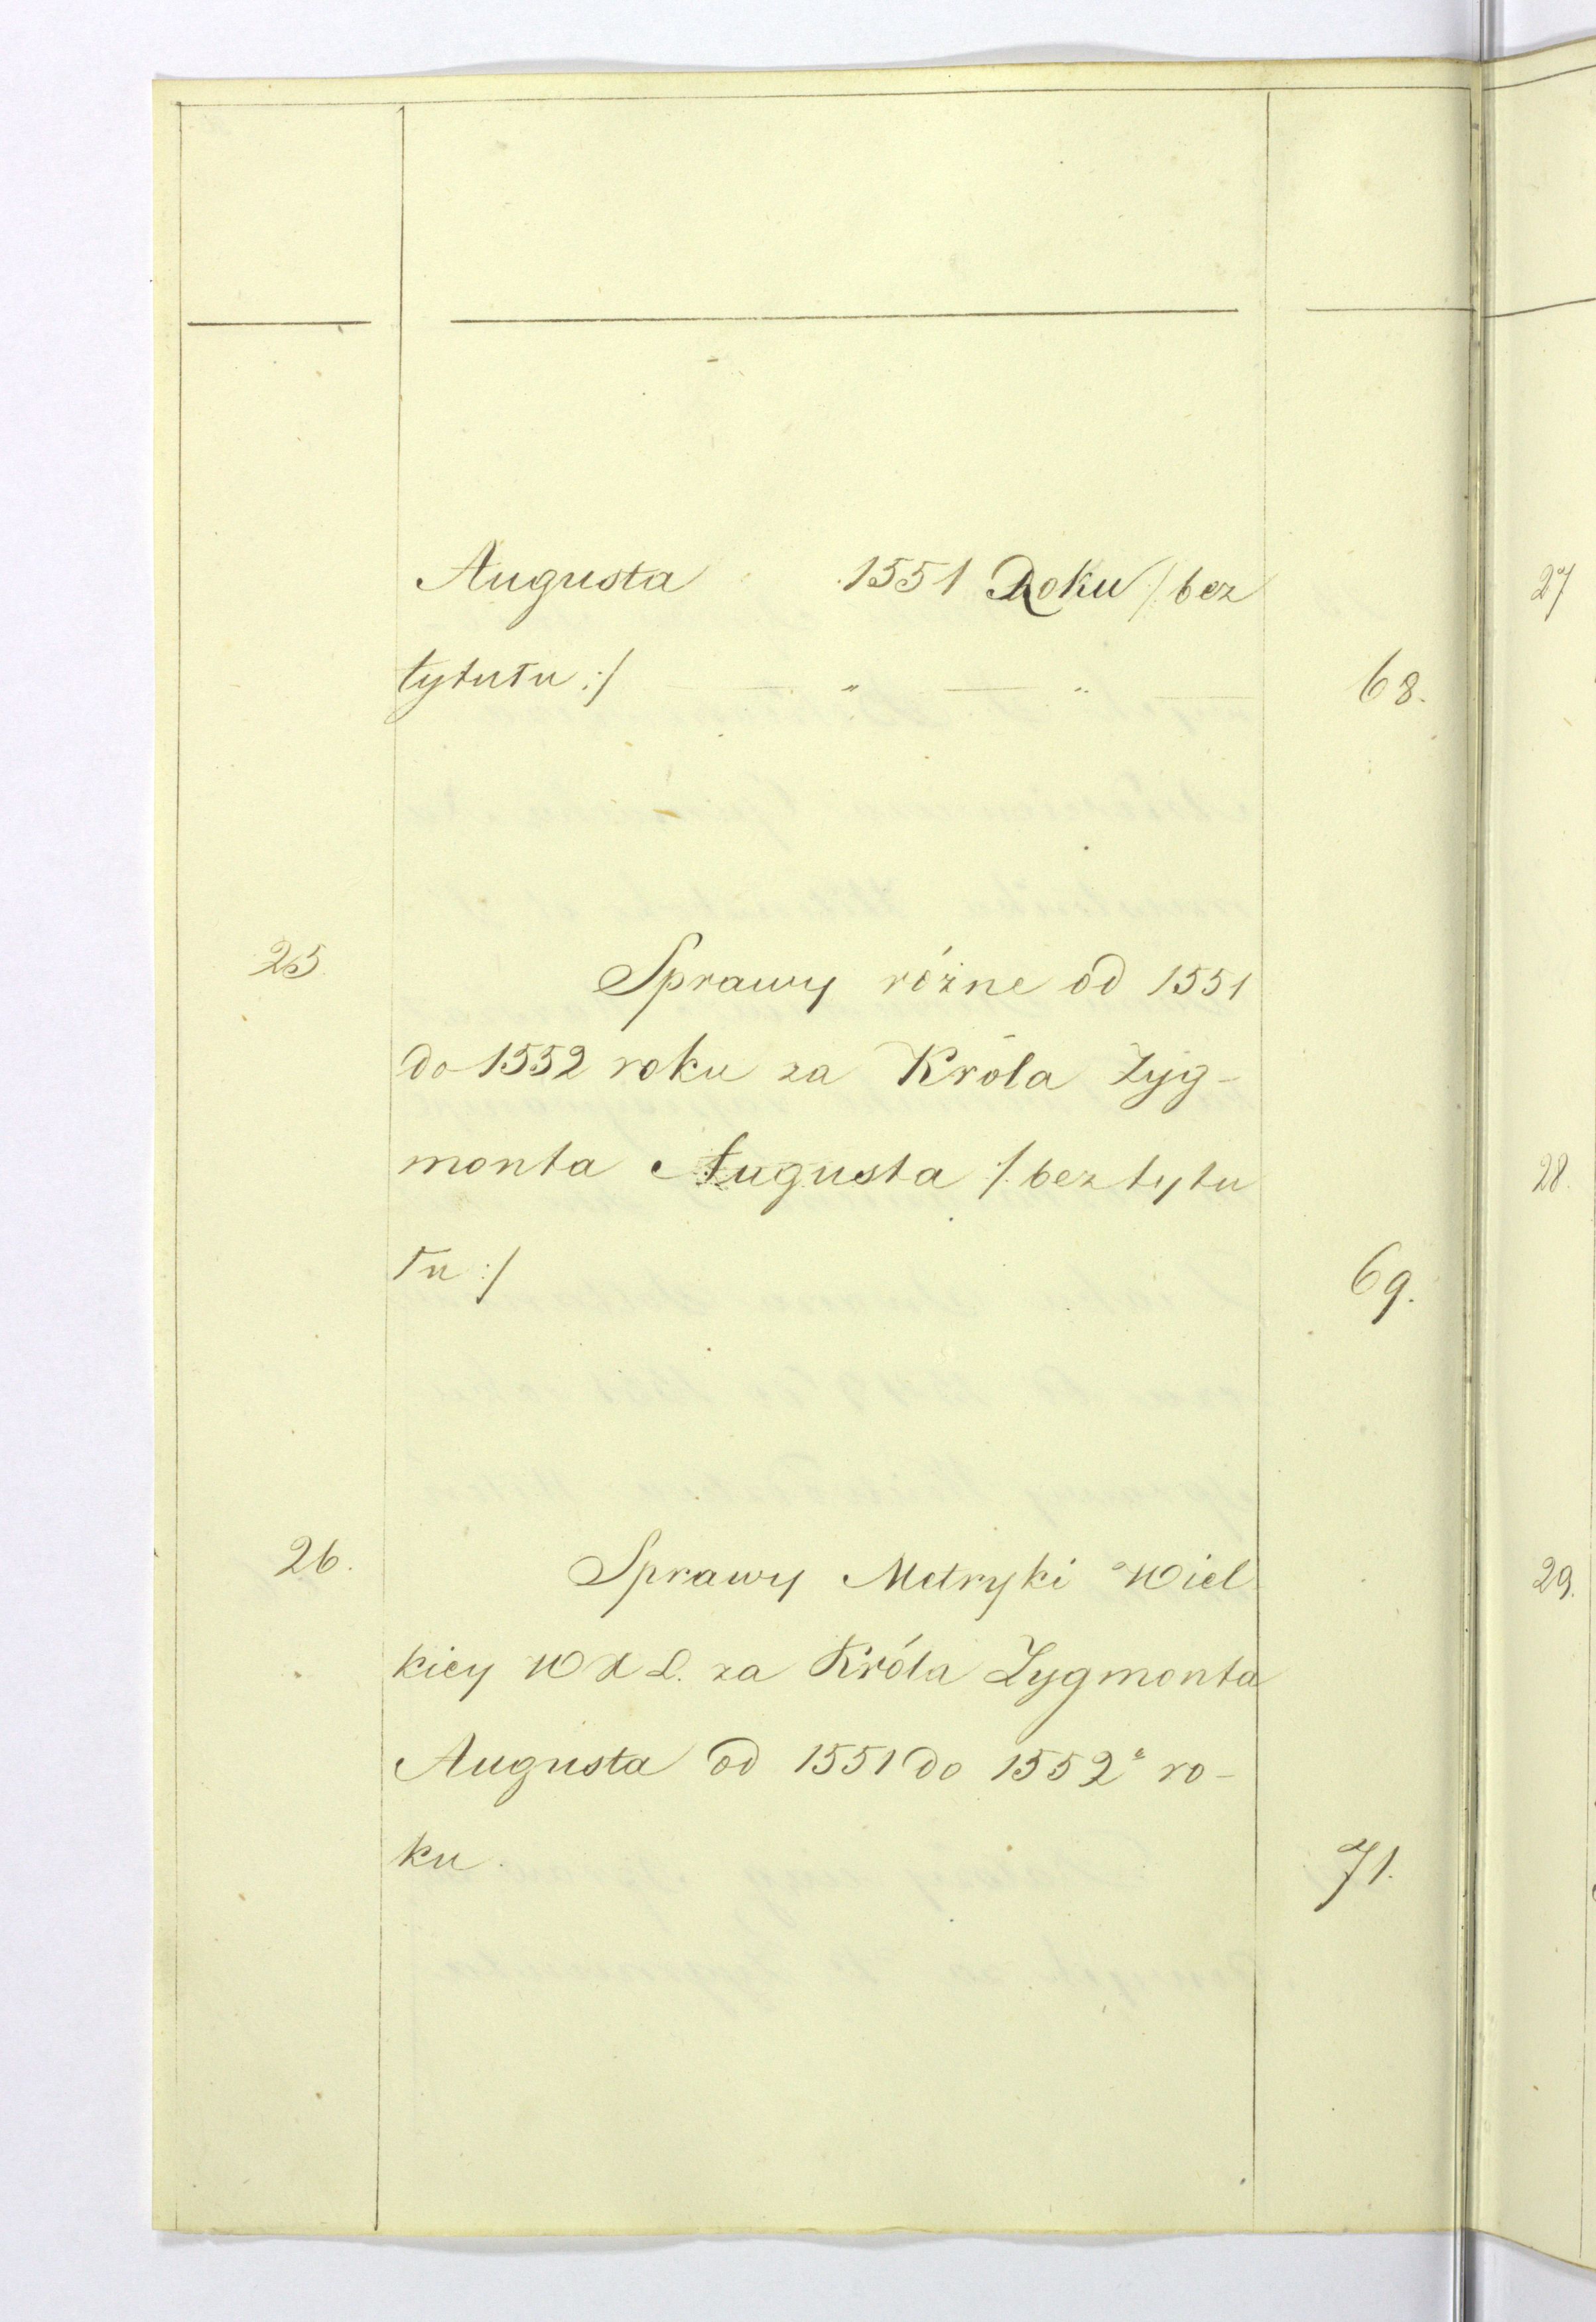 Augusta 1551 Roku /: bez
tytułu :/ — " — " — 68.
25. Sprawy różne od 1551
do 1552 roku za Króla Zyg-
monta Augusta /: bez tytu
łu :/ 69.
26. Sprawy Metryki Wiel
kiey W X L. za Króla Zygmonta
Augusta od 1551 do 1552 ro-
ku. 71.
27
28.
29.